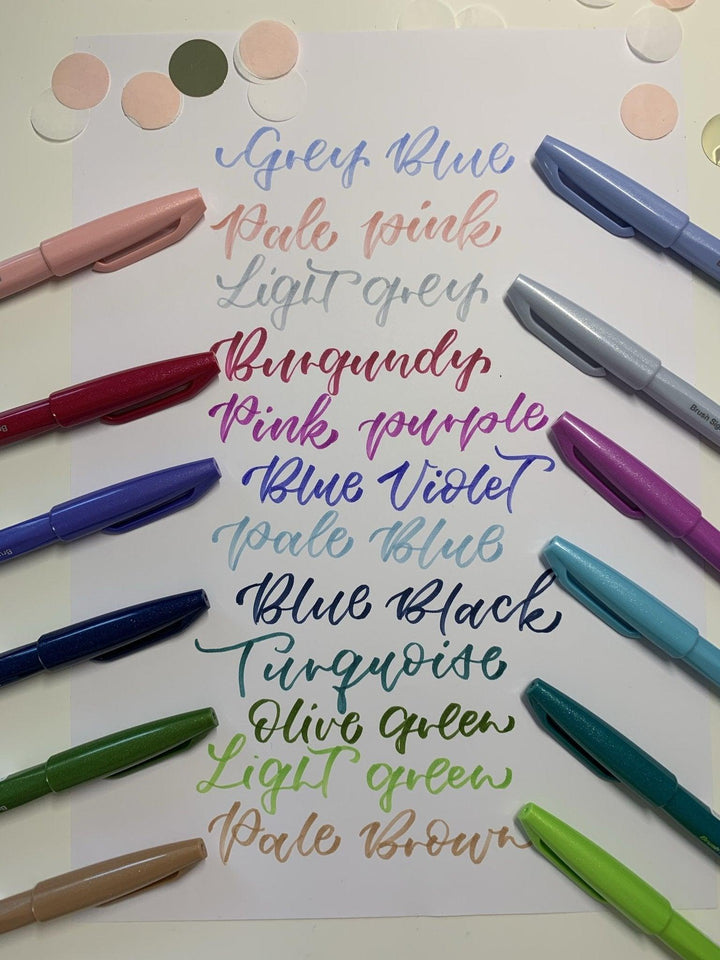 Grey Blue
Pale pink
Light grey
Burgundy
Pink purple
Blue Violet
Pale Blue
Blue Black
Turquoise
Olive green
Light green
Pale Brown
Brush Sig